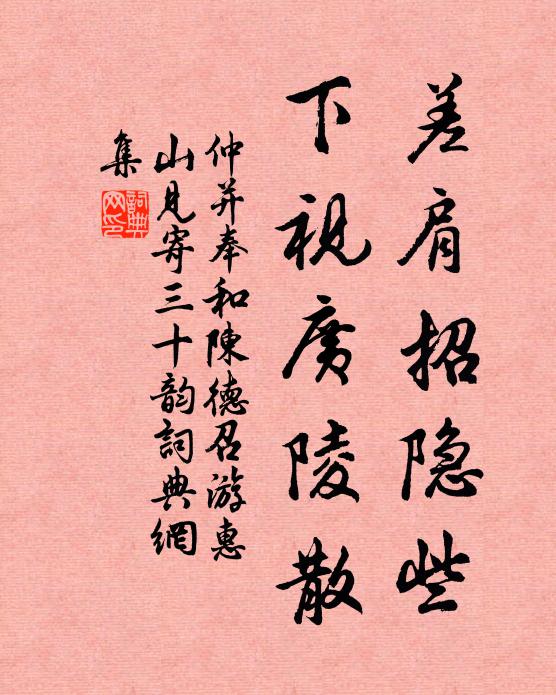 差肩招隐些
下視廣陵散
仲并奉和陳德召游惠
山見寄三十韵詞典網
集
詞典网印